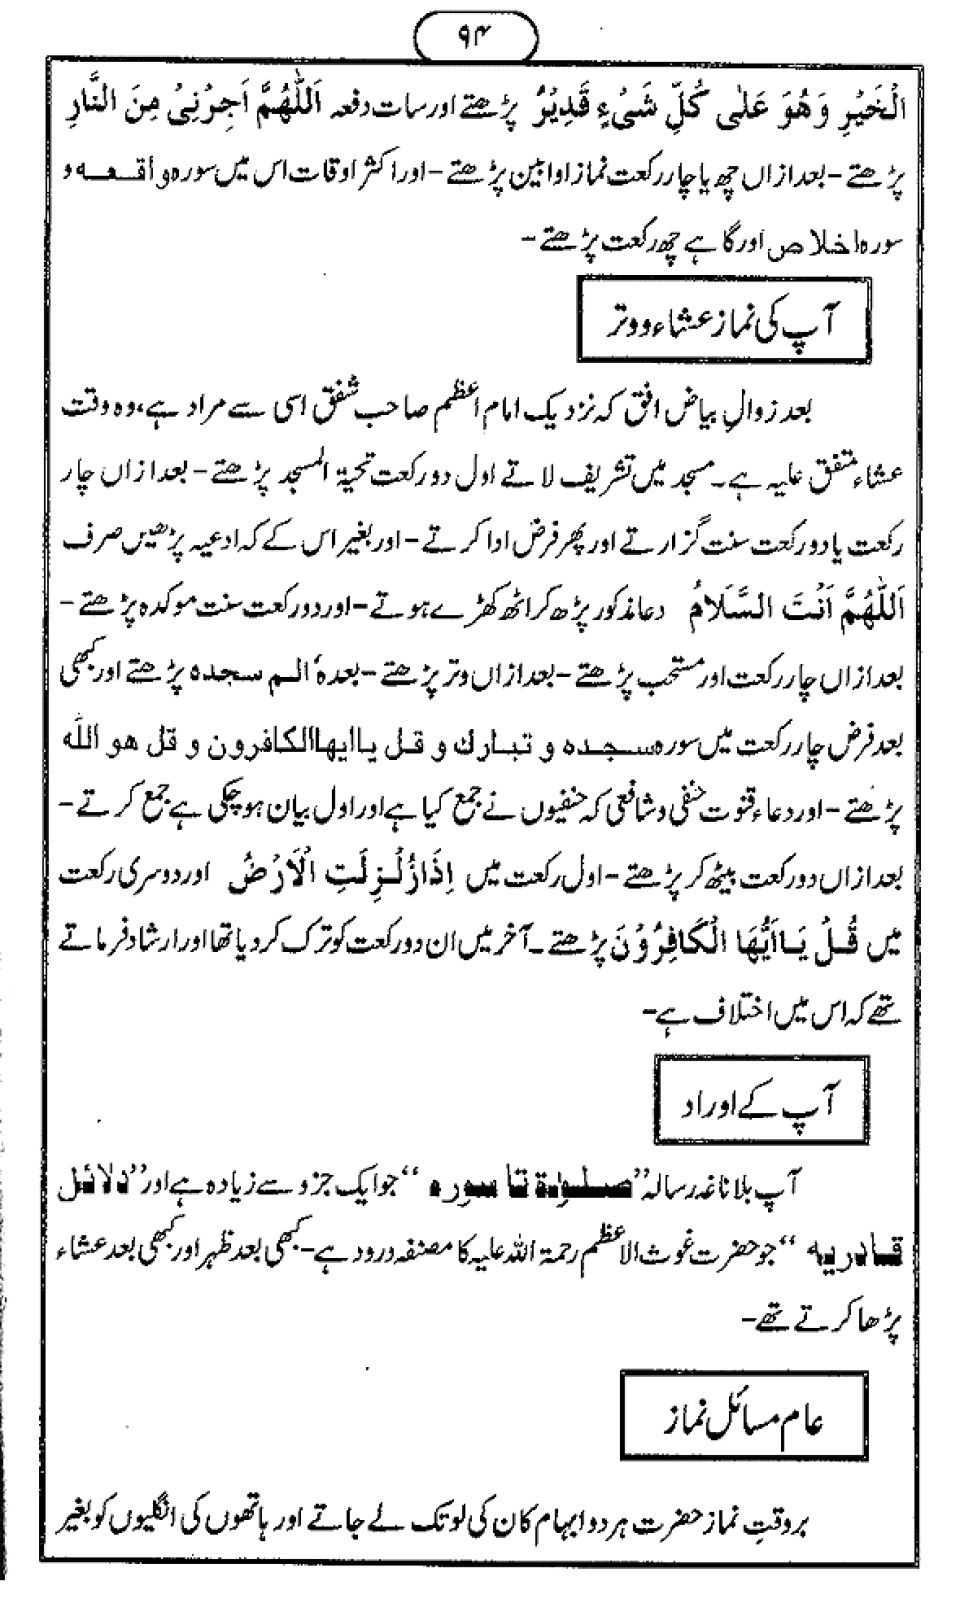 ۹۴
الْخَيْرِ وَهُوَ عَلٰى كُلِّ شَىْءٍ قَدِيْرٌ پڑھتے اور سات دفعہ اَللّٰهُمَّ اَجِرْنِىْ مِنَ النَّارِ
پڑھتے - بعد ازاں چھ یا چار رکعت نماز اوابین پڑھتے - اور اکثر اوقات اس میں سورہ واقعہ و
سورہ اخلاص اور گاہے چھ رکعت پڑھتے -
آپ کی نماز عشاء و وتر
بعد زوالِ بیاض افق کہ نزدیک امام اعظم صاحب شفق اسی سے مراد ہے، وہ وقت
عشاء متفق علیہ ہے۔ مسجد میں تشریف لاتے اول دو رکعت تحیۃ المسجد پڑھتے - بعد ازاں چار
رکعت یا دو رکعت سنت گزارتے اور پھر فرض ادا کرتے - اور بغیر اس کے کہ ادعیہ پڑھیں صرف
اَللّٰهُمَّ اَنْتَ السَّلَامُ دعا مذکور پڑھ کر اٹھ کھڑے ہوتے - اور دو رکعت سنت موکدہ پڑھتے -
بعد ازاں چار رکعت اور مستحب پڑھتے - بعد ازاں وتر پڑھتے - بعدہٗ الم سجدہ پڑھتے اور کبھی
بعد فرض چار رکعت میں سورہ سجدہ و تبارك و قل یاایها الکافرون و قل هو الله
پڑھتے - اور دعاء قنوت حنفی و شافعی کہ حنفیوں نے جمع کیا ہے اور اول بیان ہو چکی ہے جمع کرتے -
بعد ازاں دو رکعت بیٹھ کر پڑھتے - اول رکعت میں اِذَا زُلْزِلَتِ الْاَرْضُ اور دوسری رکعت
میں قُلْ يَااَيُّهَا الْكَافِرُوْنَ پڑھتے۔ آخر میں ان دو رکعت کو ترک کر دیا تھا اور ارشاد فرماتے
تھے کہ اس میں اختلاف ہے -
آپ کے اوراد
آپ بلا ناغہ رسالہ "صلوٰۃ تا سورہ" جو ایک جزو سے زیادہ ہے اور "دلائل
قادریہ" جو حضرت غوث الاعظم رحمۃ اللہ علیہ کا مصنفہ درود ہے - کبھی بعد ظہر اور کبھی بعد عشاء
پڑھا کرتے تھے -
عام مسائل نماز
بروقتِ نماز حضرت ہر دو ابہام کان کی لو تک لے جاتے اور ہاتھوں کی انگلیوں کو بغیر